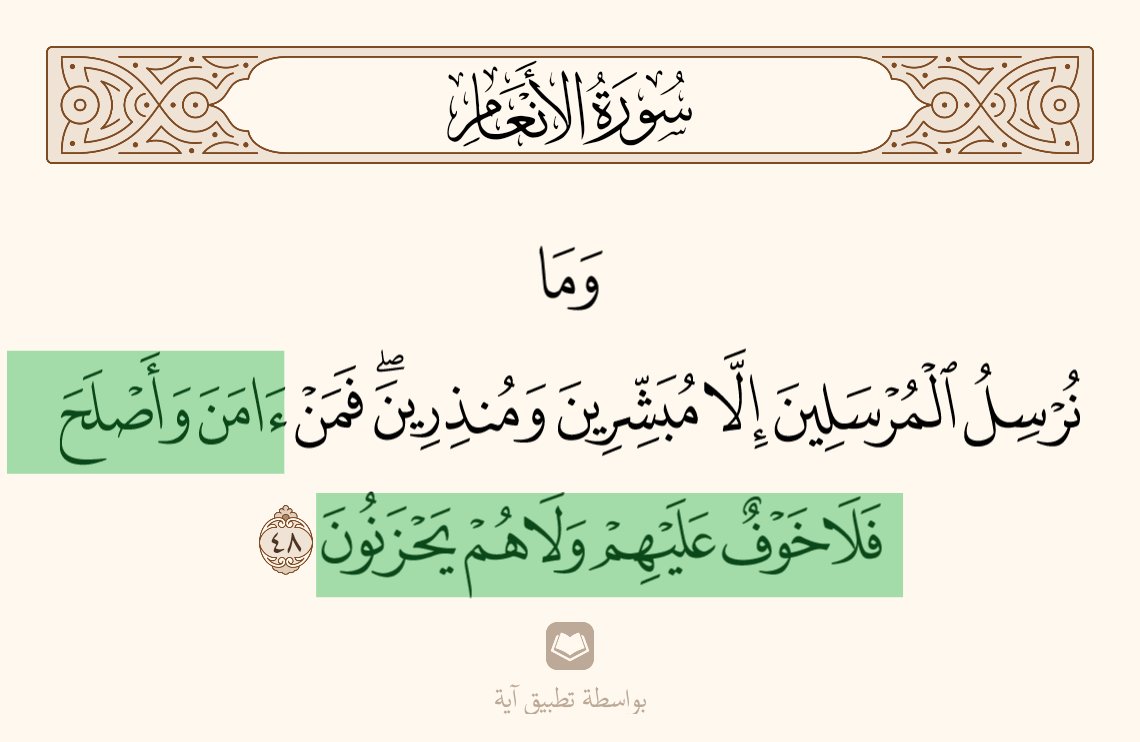 سُورَةُ الأَنْعَامِ
وَمَا
نُرْسِلُ ٱلْمُرْسَلِينَ إِلَّا مُبَشِّرِينَ وَمُنذِرِينَۖ فَمَنْ ءَامَنَ وَأَصْلَحَ
فَلَا خَوْفٌ عَلَيْهِمْ وَلَا هُمْ يَحْزَنُونَ ٤٨
بواسطة تطبيق آية